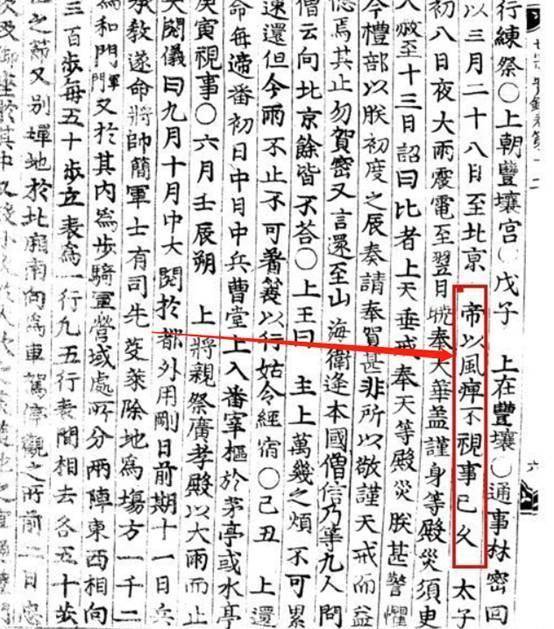 行練祭○上朝豐壤宮○戊子 上在豐壤○通事林密回
以三月二十八日至北京 帝以風痺不視事已久 太子
初八日夜大雨震電至翌日曉奉天華蓋謹身等殿災須更
人救至十三日詔曰比者上天垂戒奉天等殿災朕甚警懼
今禮部以朕初度之辰奏請奉賀甚非所以敬謹天戒而益
德焉其止勿賀密又言還至山海衛逢本國僧信乃等九人問
僧云向北京餘皆不答○上王曰 主上萬幾之煩不可累
遠還但今雨不止不可着簑以行姑令經宿○己丑 上還
命每諦番初日中日中兵曹堂上入番宰樞於茅亭或水亭
庚寅視事○六月壬辰朔 上將親祭廣孝殿以大雨而止
大閱儀曰九月十月中大閱於都外用剛日前期十一日兵
承敎遂命將帥簡軍士有司先芟萊除地爲場方一千二
爲和門軍門又於其內爲步騎軍營域處所分兩陣東西相向
三百步每五十步立表爲一行凡五行表間相去各五十步
之節又別墠地於北廂南向爲車駕停觀之所前一日忠
次設御座於其中